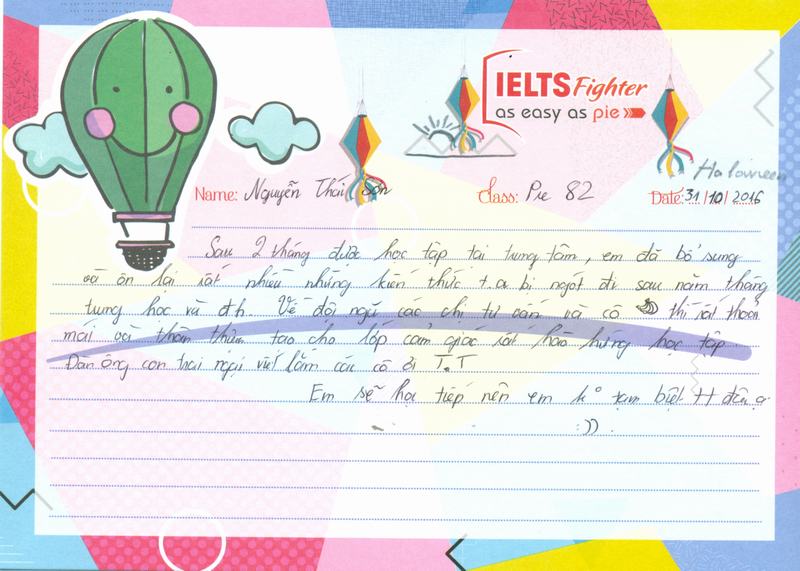 IELTS Fighter
as easy as pie
Haloween
Name: Nguyễn Thái Sơn Class: Pie 82 Date: 31/10/2016
Sau 2 tháng được học tập tại trung tâm, em đã bổ sung
và ôn lại rất nhiều những kiến thức t.a bị ngót đi sau năm tháng
trung học và đh. Về đội ngũ các chị tư vấn và cô thì rất thoải
mái và thân thiện tạo cho lớp cảm giác rất hào hứng học tập
Đàn ông con trai ngại viết lắm các cô ơi T.T
Em sẽ học tiếp nên em k° tạm biệt tt đâu ạ
:)) .